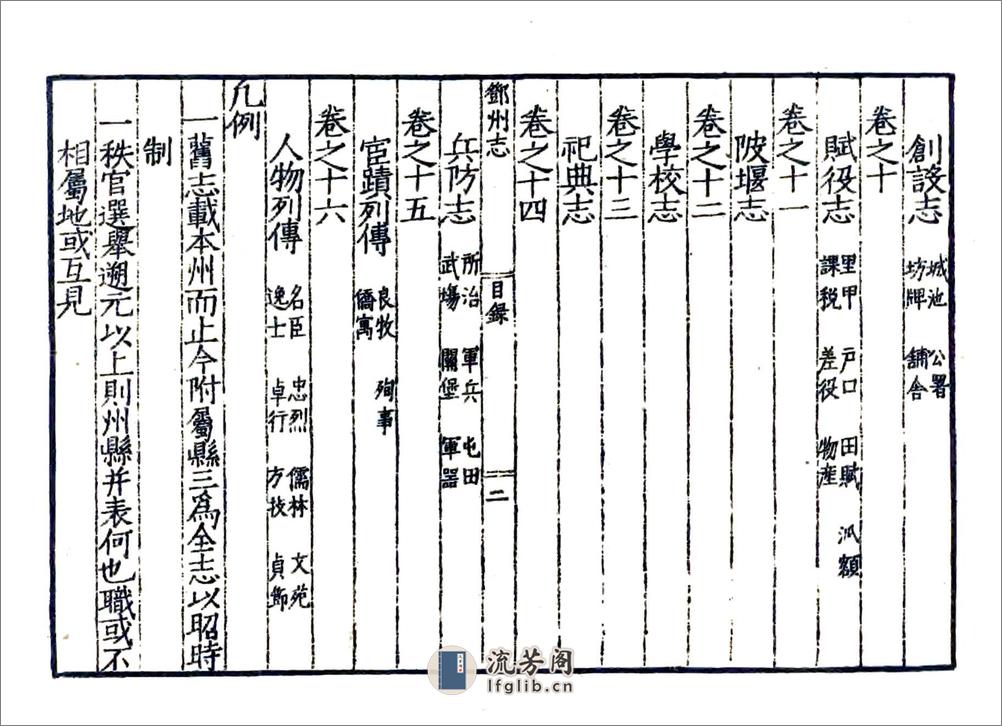 創設志 城池 公署 坊牌 舖舍
卷之十
賦役志 里甲 戶口 田賦 派額 課税 差役 物産
卷之十一
陂堰志
卷之十二
學校志
卷之十三
祀典志
卷之十四
鄧州志 目録 二
兵防志 所治 軍兵 屯田 武場 關堡 軍器
卷之十五
宦蹟列傳 良牧 殉事 僑寓
卷之十六
人物列傳 名臣 忠烈 儒林 文苑 逸士 卓行 方技 貞節
凡例
一舊志載本州而止今附屬縣三爲全志以昭時
制
一秩官選舉遡元以上則州縣并表何也職或不
相屬地或互見
流芳阁
lfglib.cn